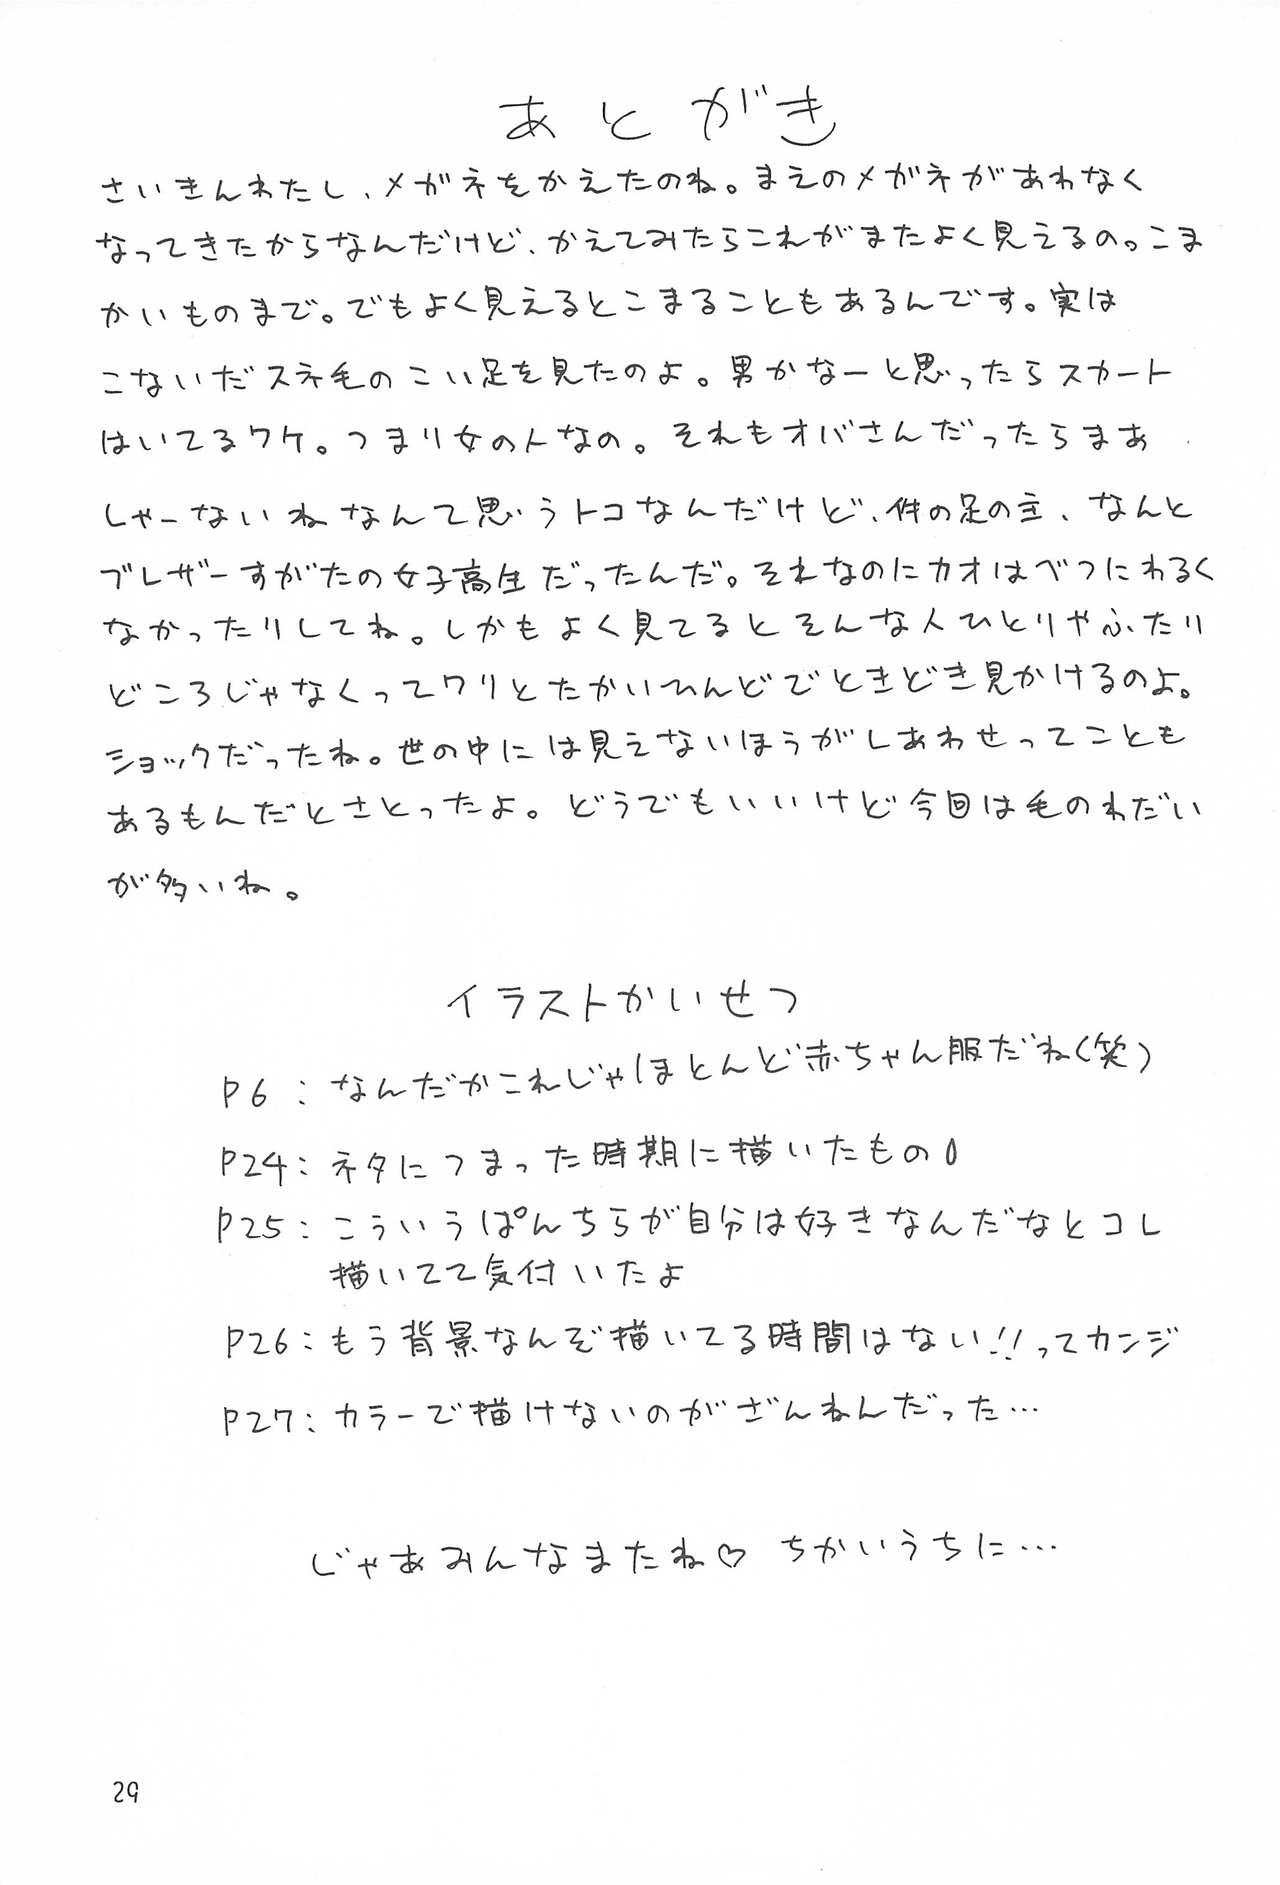 あとがき
さいきんわたし、メガネをかえたのね。まえのメガネがあわなく
なってきたからなんだけど、かえてみたらこれがまたよく見えるの。こま
かいものまで。でもよく見えるとこまることもあるんです。実は
こないだスネ毛のこい足を見たのよ。男かなーと思ったらスカート
はいてるワケ。つまり女の人なの。それもオバさんだったらまあ
しゃーないねなんて思うトコなんだけど、件の足の主、なんと
ブレザーすがたの女子高生だったんだ。それなのにカオはべつにわるく
なかったりしてね。しかもよく見てるとそんな人ひとりやふたり
どころじゃなくってワリとたかいひんどでときどき見かけるのよ。
ショックだったね。世の中には見えないほうがしあわせってことも
あるもんだとさとったよ。どうでもいいけど今回は毛のわだい
が多いね。
イラストかいせつ
P6：なんだかこれじゃほとんど赤ちゃん服だね(笑)
P24：ネタにつまった時期に描いたもの
P25：こういうぱんちらが自分は好きなんだなとコレ
描いてて気付いたよ
P26：もう背景なんぞ描いてる時間はない!!ってカンジ
P27：カラーで描けないのがざんねんだった…
じゃあみんなまたね♡ ちかいうちに…
29